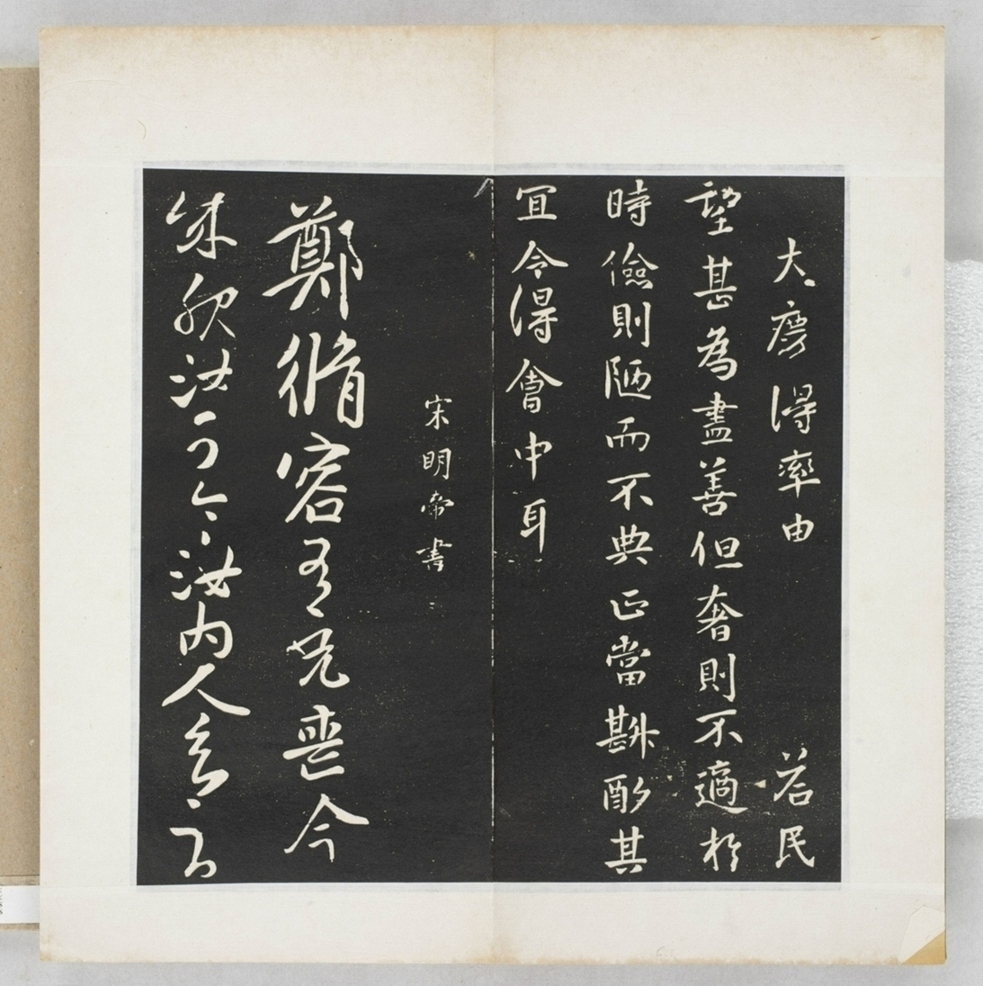 大慶得率由 若民
望甚為盡善但奢則不適於
時儉則陋而不典正當斟酌其
宜令得會中耳
宋明帝書
鄭脩容 兄喪今
汝 汝內人